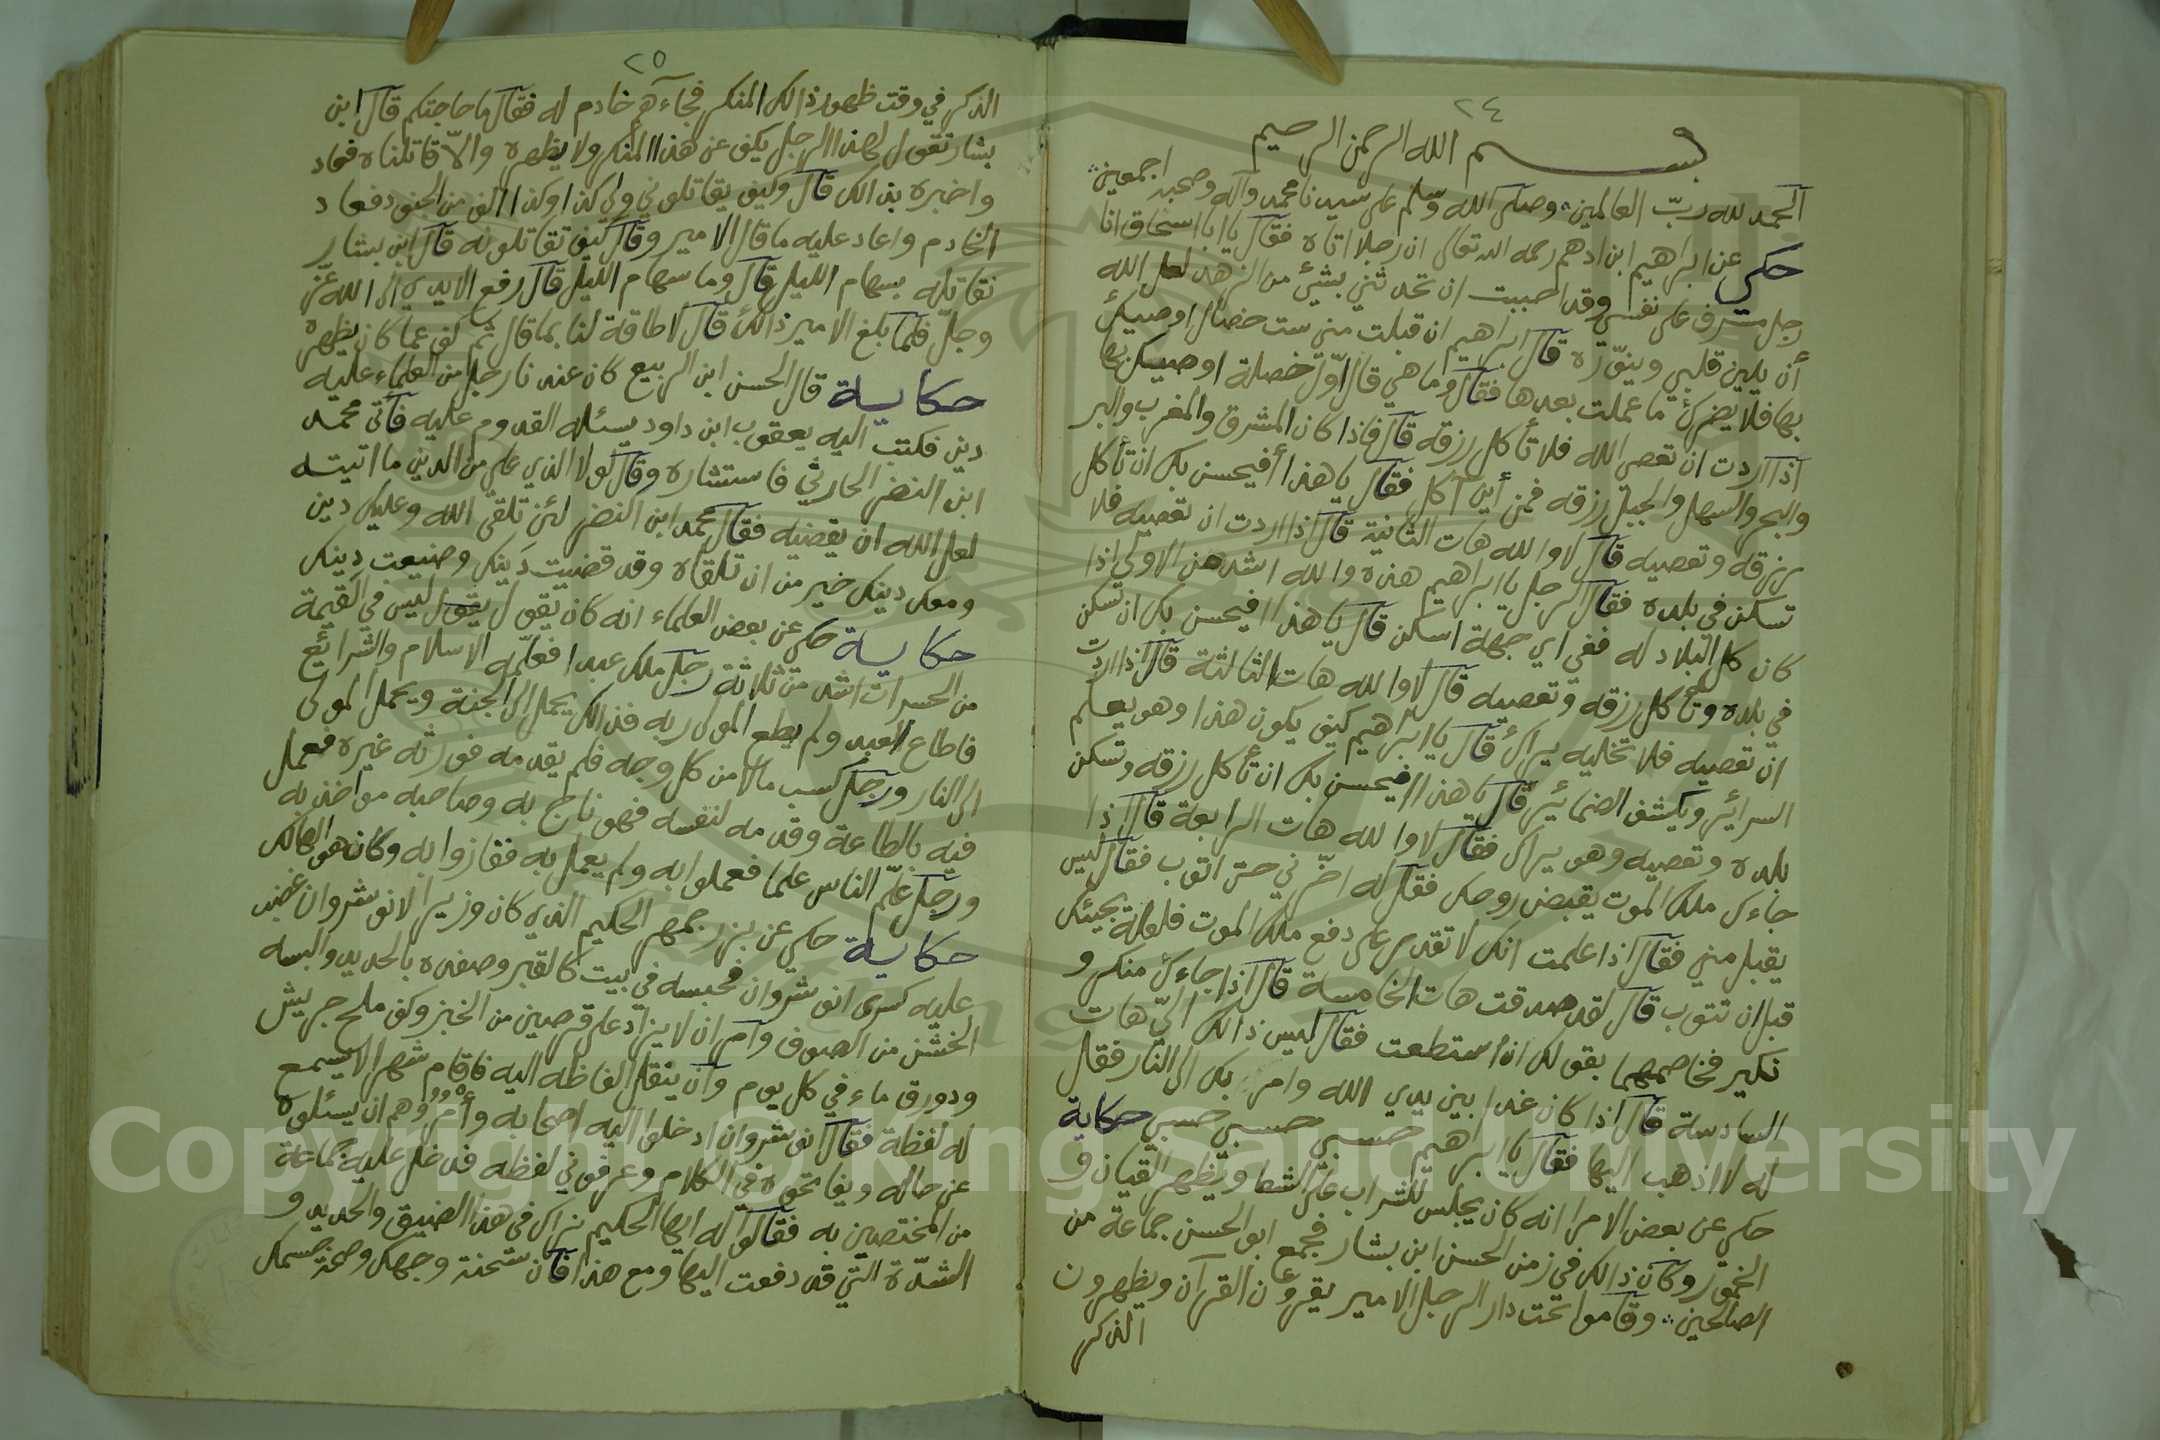 ٢٤
بسم الله الرحمن الرحيم
الحمد لله ربّ العالمين وصلى الله وسلم على سيدنا محمد وآله وصحبه اجمعين
حكي عن ابراهيم ابن ادهم رحمه الله تعالى ان رجلا اتاه فقال يا ابا اسحاق انا
رجل مسرف على نفسي وقد احببت ان تحدثني بشيئ من الزهد لعل الله
أن يلين قلبي وينوّره قال ابراهيم ان قبلت مني ست خصال اوصيك
بها فلا يضرك ما عملت بعدها فقال وما هي قال اوّل خصلة اوصيك بها
اذا اردت ان تعصي الله فلا تأكل رزقه قال فاذا كان المشرق والمغرب والبر
والبحر والسهل والجبل رزقه فمن أين آكل فقال يا هذا أفيحسن بك ان تأكل
رزقه وتعصيه قال لا والله هات الثانية قال اذا اردت ان تعصيه فلا
تسكن في بلده فقال الرجل يا ابراهيم هذه والله اشد من الاولى اذا
كان كل البلاد له ففي اي جهة اسكن قال يا هذا افيحسن بك ان تسكن
في بلده وتأكل رزقه وتعصيه قال لا والله هات الثالثة قال اذا اردت
ان تعصيه فلا تخليه يراك قال يا ابراهيم كيف يكون هذا وهو يعلم
السرائر ويكشف الضمائير قال يا هذا افيحسن بك ان تأكل رزقه وتسكن
بلده وتعصيه وهو يراك فقال لا والله هات الرابعة قال اذا
جاءك ملك الموت يقبض روحك فقل له اخّرني حتى اتوب فقال ليس
يقبل مني فقال اذا علمت انك لا تقدر على دفع ملك الموت فلعله يجيئك
قبل ان تتوب قال لقد صدقت هات الخامسة قال اذا جاءك منكر و
نكير فخاصمهما بقولك ان استطعت فقال ليس ذالك اليّ هات
السادسة قال اذا كان غدا بين يدي الله وامر بك الى النار فقل
له لا اذهب اليها فقال يا ابراهيم حسبي حسبي حسبي حكاية
حكي عن بعض الامرا انه كان يجلس للشراب على الشط ويظهر القيان و
الخمور وكان ذالك في زمن الحسن ابن بشار فجمع ابو الحسن جماعة من
الصالحين وقاموا تحت دار الرجل الامير يقرؤن القرآن ويظهرون
الذكر
٢٥
الذكر في وقت ظهور ذالك المنكر فجاءهم خادم له فقال ما حاجتكم قال ابن
بشار تقول لهذا الرجل يكف عن هذا المنكر ولا يظهره والاّ قاتلناه فعاد
واخبره بذالك قال وكيف يقاتلوني ولي كذا وكذا الف من الجند فعاد
الخادم واعاد عليه ما قال الامير وقال كيف تقاتلونه قال ابن بشار
نقاتله بسهام الليل قال وما سهام الليل قال رفع الايدي الى الله عز
وجلّ فلما بلغ الامير ذالك قال لا طاقة لنا بما قال ثم كف عما كان يظهره
حكاية قال الحسن ابن الربيع كان عندنا رجل من العلماء عليه
دين فكتب اليه يعقوب ابن داود يسئله القدوم عليه فأتى محمد
ابن النضر الحارثي فاستشاره وقال لولا الذي علي من الدين ما اتيته
لعل الله ان يقضيه فقال محمد ابن النضر لئن تلقى الله وعليك دين
ومعك دينك خير من ان تلقاه وقد قضيت دَينك وضيعت دينك
حكاية حكي عن بعض العلماء انه كان يقول يقول ليس في القيمة
من الحسرات اشد من ثلاثة رجل ملك عبدا فعلّمه الاسلام والشرائع
فاطاع العبد ولم يطع المولى ربه فذالك يحمل الى الجنة ويحمل المولى
الى النار ورجل كسب مالا من كل وجه فلم يقدمه فورثه غيره فعمل
فيه بالطاعة وقدمه لنفسه فهو ناج به وصاحبه مواخذ به
ورجل علّم الناس علما فعملوا به ولم يعمل به ففازوا به وكان هو الهالك
حكاية حكي عن بزرجمهر الحكيم الذي كان وزيرا لانوشروان غضب
عليه كسرى انوشروان فحبسه في بيت كالقبر وصفده بالحديد والبسه
الخشن من الصوف وامر ان لا يزاد على قرصين من الخبز وكف ملح جريش
ودورق ماء في كل يوم وان ينقل الفاظه اليه فاقام شهرا لا يسمع
له لفظة فقال انوشروان ادخلوا اليه اصحابه وأمروهم ان يسئلوه
عن حاله ويفاتحوه في الكلام وعرفوني لفظه فدخل عليه جماعة
من المختصين به فقالوا له ايها الحكيم نراك في هذا الضيق والحديد و
الشدّة التي قد دفعت اليها ومع هذا فان سحنة وجهك وصحة جسمك
Copyright © King Saud University